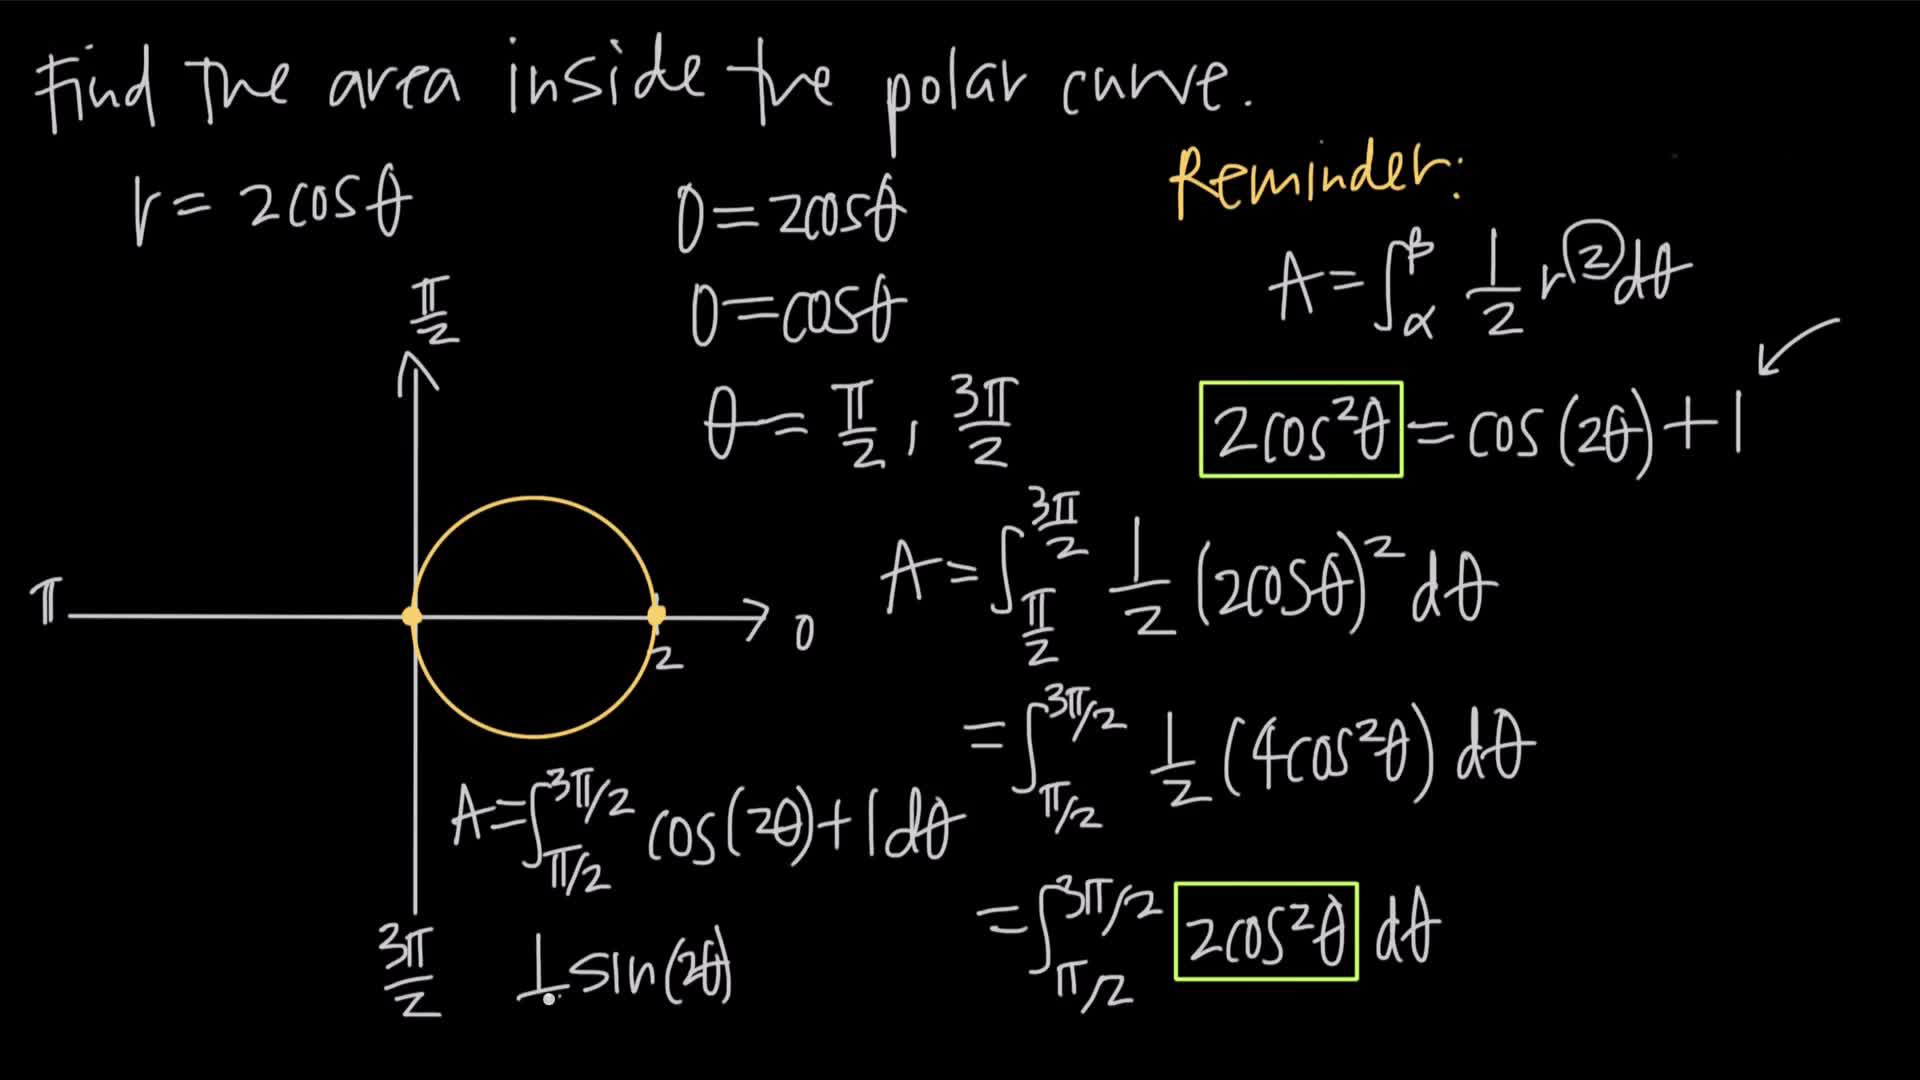 Find the area inside the polar curve.
r = 2cosθ
0 = 2cosθ
0 = cosθ
θ = π/2, 3π/2
Reminder:
A = ∫_α^β 1/2 r² dθ
2cos²θ = cos(2θ) + 1
π/2
π
0
2
3π/2
A = ∫_{π/2}^{3π/2} 1/2 (2cosθ)² dθ
= ∫_{π/2}^{3π/2} 1/2 (4cos²θ) dθ
= ∫_{π/2}^{3π/2} 2cos²θ dθ
A = ∫_{π/2}^{3π/2} cos(2θ) + 1 dθ
1/ sin(2θ)